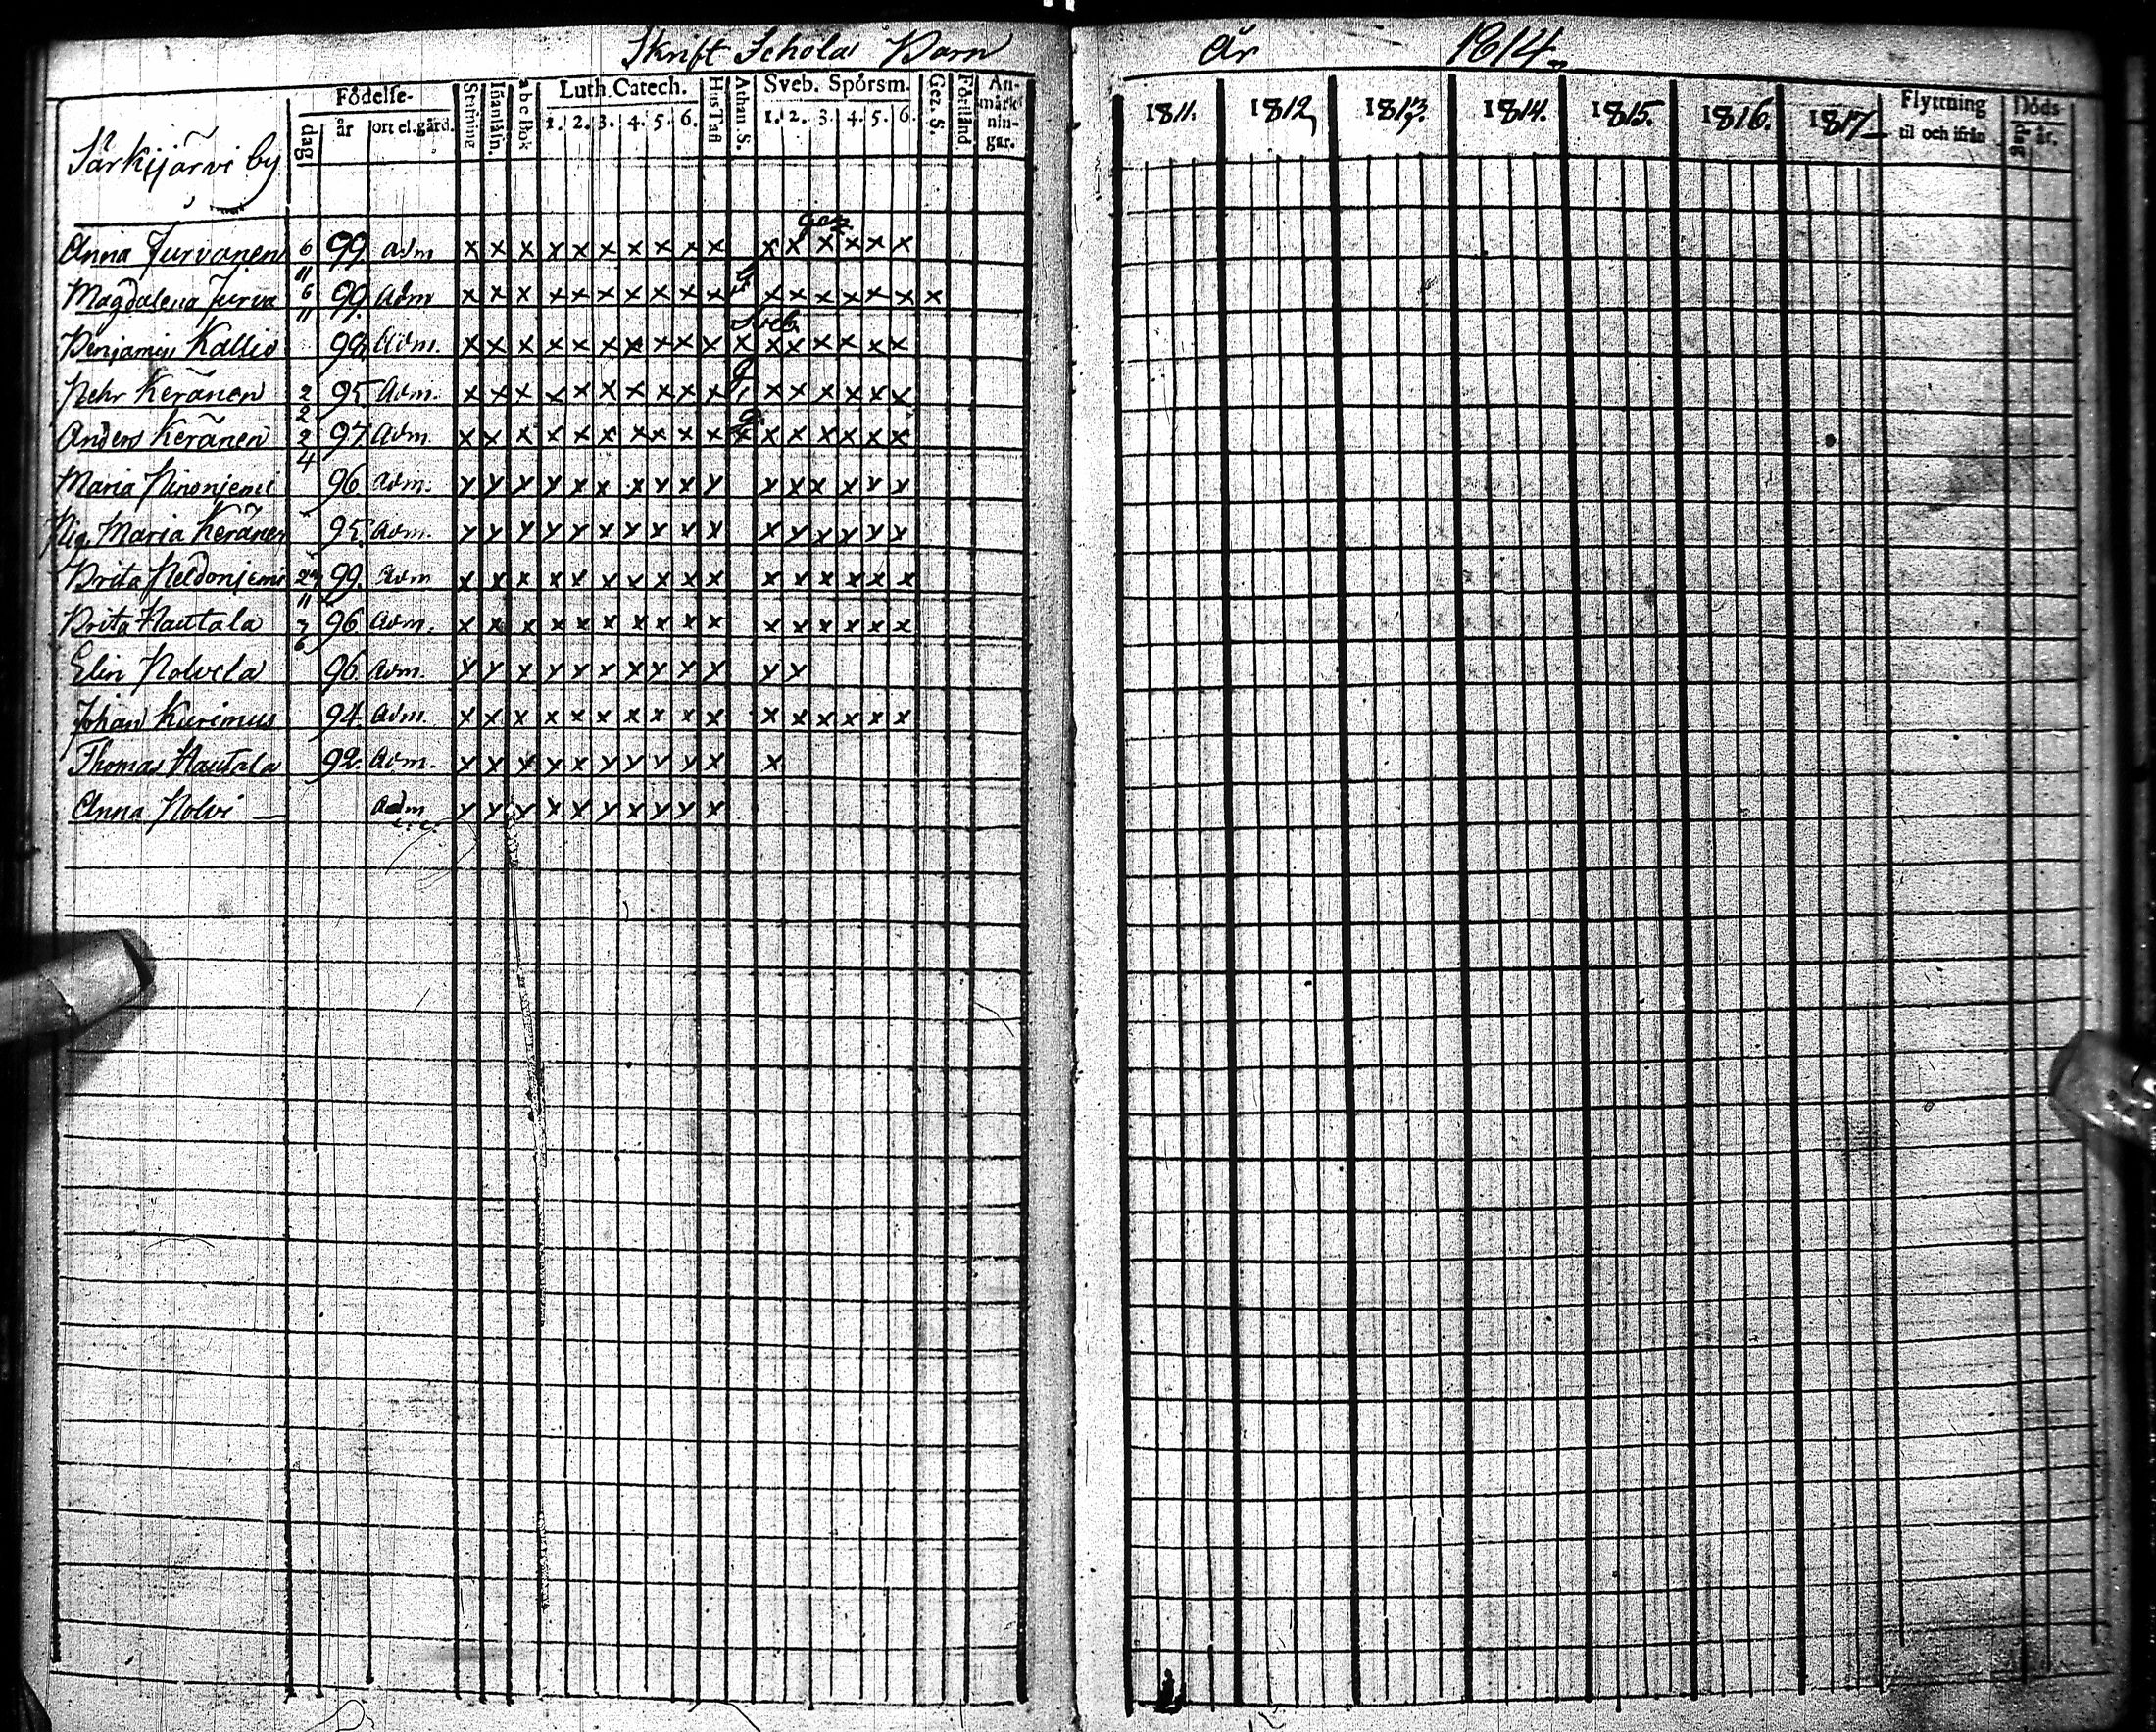 Skrift Schola Barn År 1814
Födelse-
dag år ort el. gård.
Stafning Iñanläsn. a b c Bok
Luth. Catech.
1. 2. 3. 4. 5. 6.
Hus Tafl Athan. S.
Sveb. Spörsm.
1. 2. 3. 4. 5. 6.
Gez. S. Förstånd
An-
märk-
nin-
gar.
1811. 1812 1813. 1814. 1815. 1816. 1817
Flyttning
til och ifrån
Döds
dag år.
Särkijärvi by
Anna Jurvanen 6/11 99 adm x x x x x x x x x x x x x x x x
Magdalena Jurva 6/11 99. Adm x x x x x x x x x x x x x x x x x
Sveb.
Benjamin Kallio 99. Adm. x x x x x x x x x x x x x x x x x
Pehr Keränen 2/2 95 Adm. x x x x x x x x x x x x x x x x
Anders Keränen 2/4 97. Adm. x x x x x x x x x x x x x x x x x
Maria 96 Adm. x x x x x x x x x x x x x x x x
Pig. Maria Keränen 95. Adm. x x x x x x x x x x x x x x x x
Brita 99. Adm x x x x x x x x x x x x x x x x
Brita Hautala 7/6 96 Adm. x x x x x x x x x x x x x x x x
Elin 96. Adm. x x x x x x x x x x x x
Johan Kurimus 94. Adm. x x x x x x x x x x x x x x x x
Thomas Hautala 92. Adm. x x x x x x x x x x x
Anna Adm x x x x x x x x x x